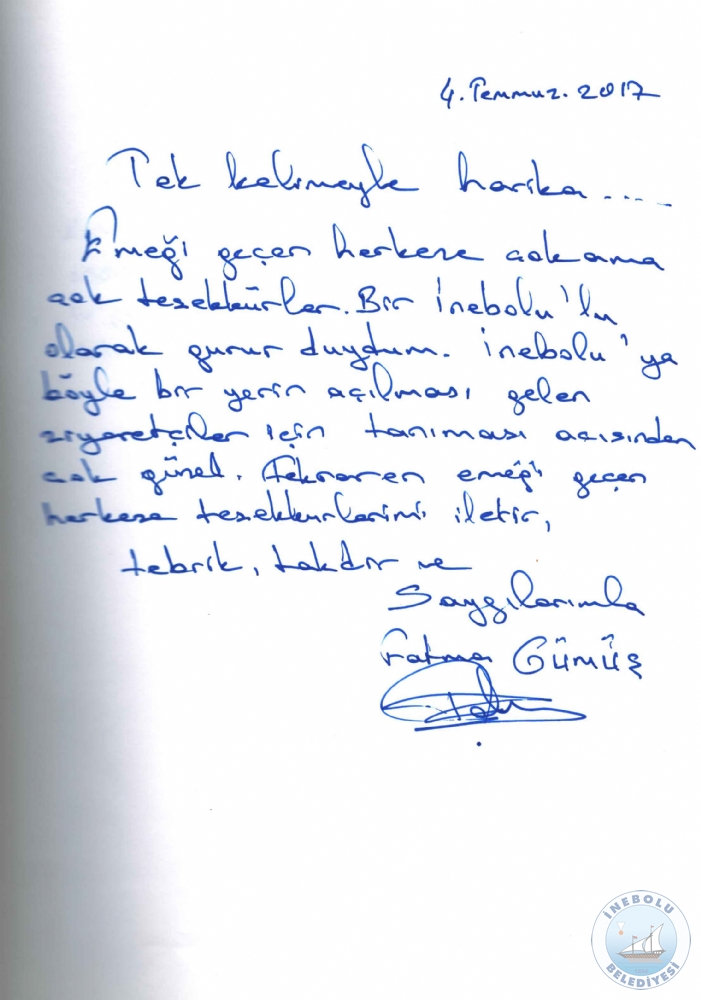 4. Temmuz. 2017
Tek kelimeyle harika.....
Emeği geçen herkese çok ama
çok teşekkürler. Bir İnebolu'lu
olarak gurur duydum. İnebolu'ya
böyle bir yerin açılması gelen
ziyaretçiler için tanıması açısından
çok güzel. Tekraren emeği geçen
herkese teşekkürlerimi iletir,
tebrik, takdir ve
Saygılarımla
Fatma Gümüş
İNEBOLU
BELEDİYESİ